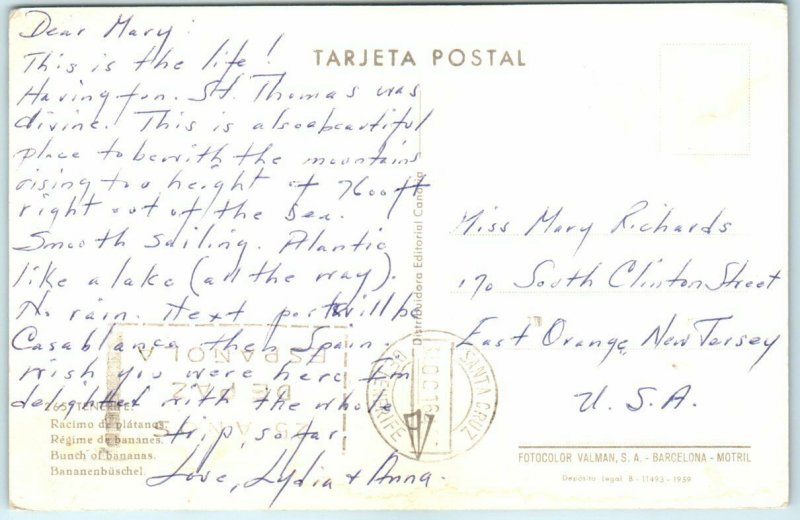 Dear Mary:
This is the life!
Having fun. St. Thomas was
divine. This is also a beautiful
place to be with the mountains
rising to a height of 7600 ft
right out of the sea.
Smooth sailing. Atlantic
like a lake (all the way).
No rain. Next port will be
Casablanca then Spain.
Wish you were here I'm
delighted with the whole
trip, so far.
Love, Lydia + Anna.
TARJETA POSTAL
Distribuidora Editorial Canaria
Miss Mary Richards
170 South Clinton Street
East Orange, New Jersey
U. S. A.
25 AÑOS
DE PAZ
ESPAÑOLA
SANTA CRUZ
TENERIFE
265 TENERIFE.
Racimo de plátanos.
Régime de bananes.
Bunch of bananas.
Bananenbüschel.
FOTOCOLOR VALMAN, S. A. - BARCELONA - MOTRIL
Depósito legal B - 11493 - 1959